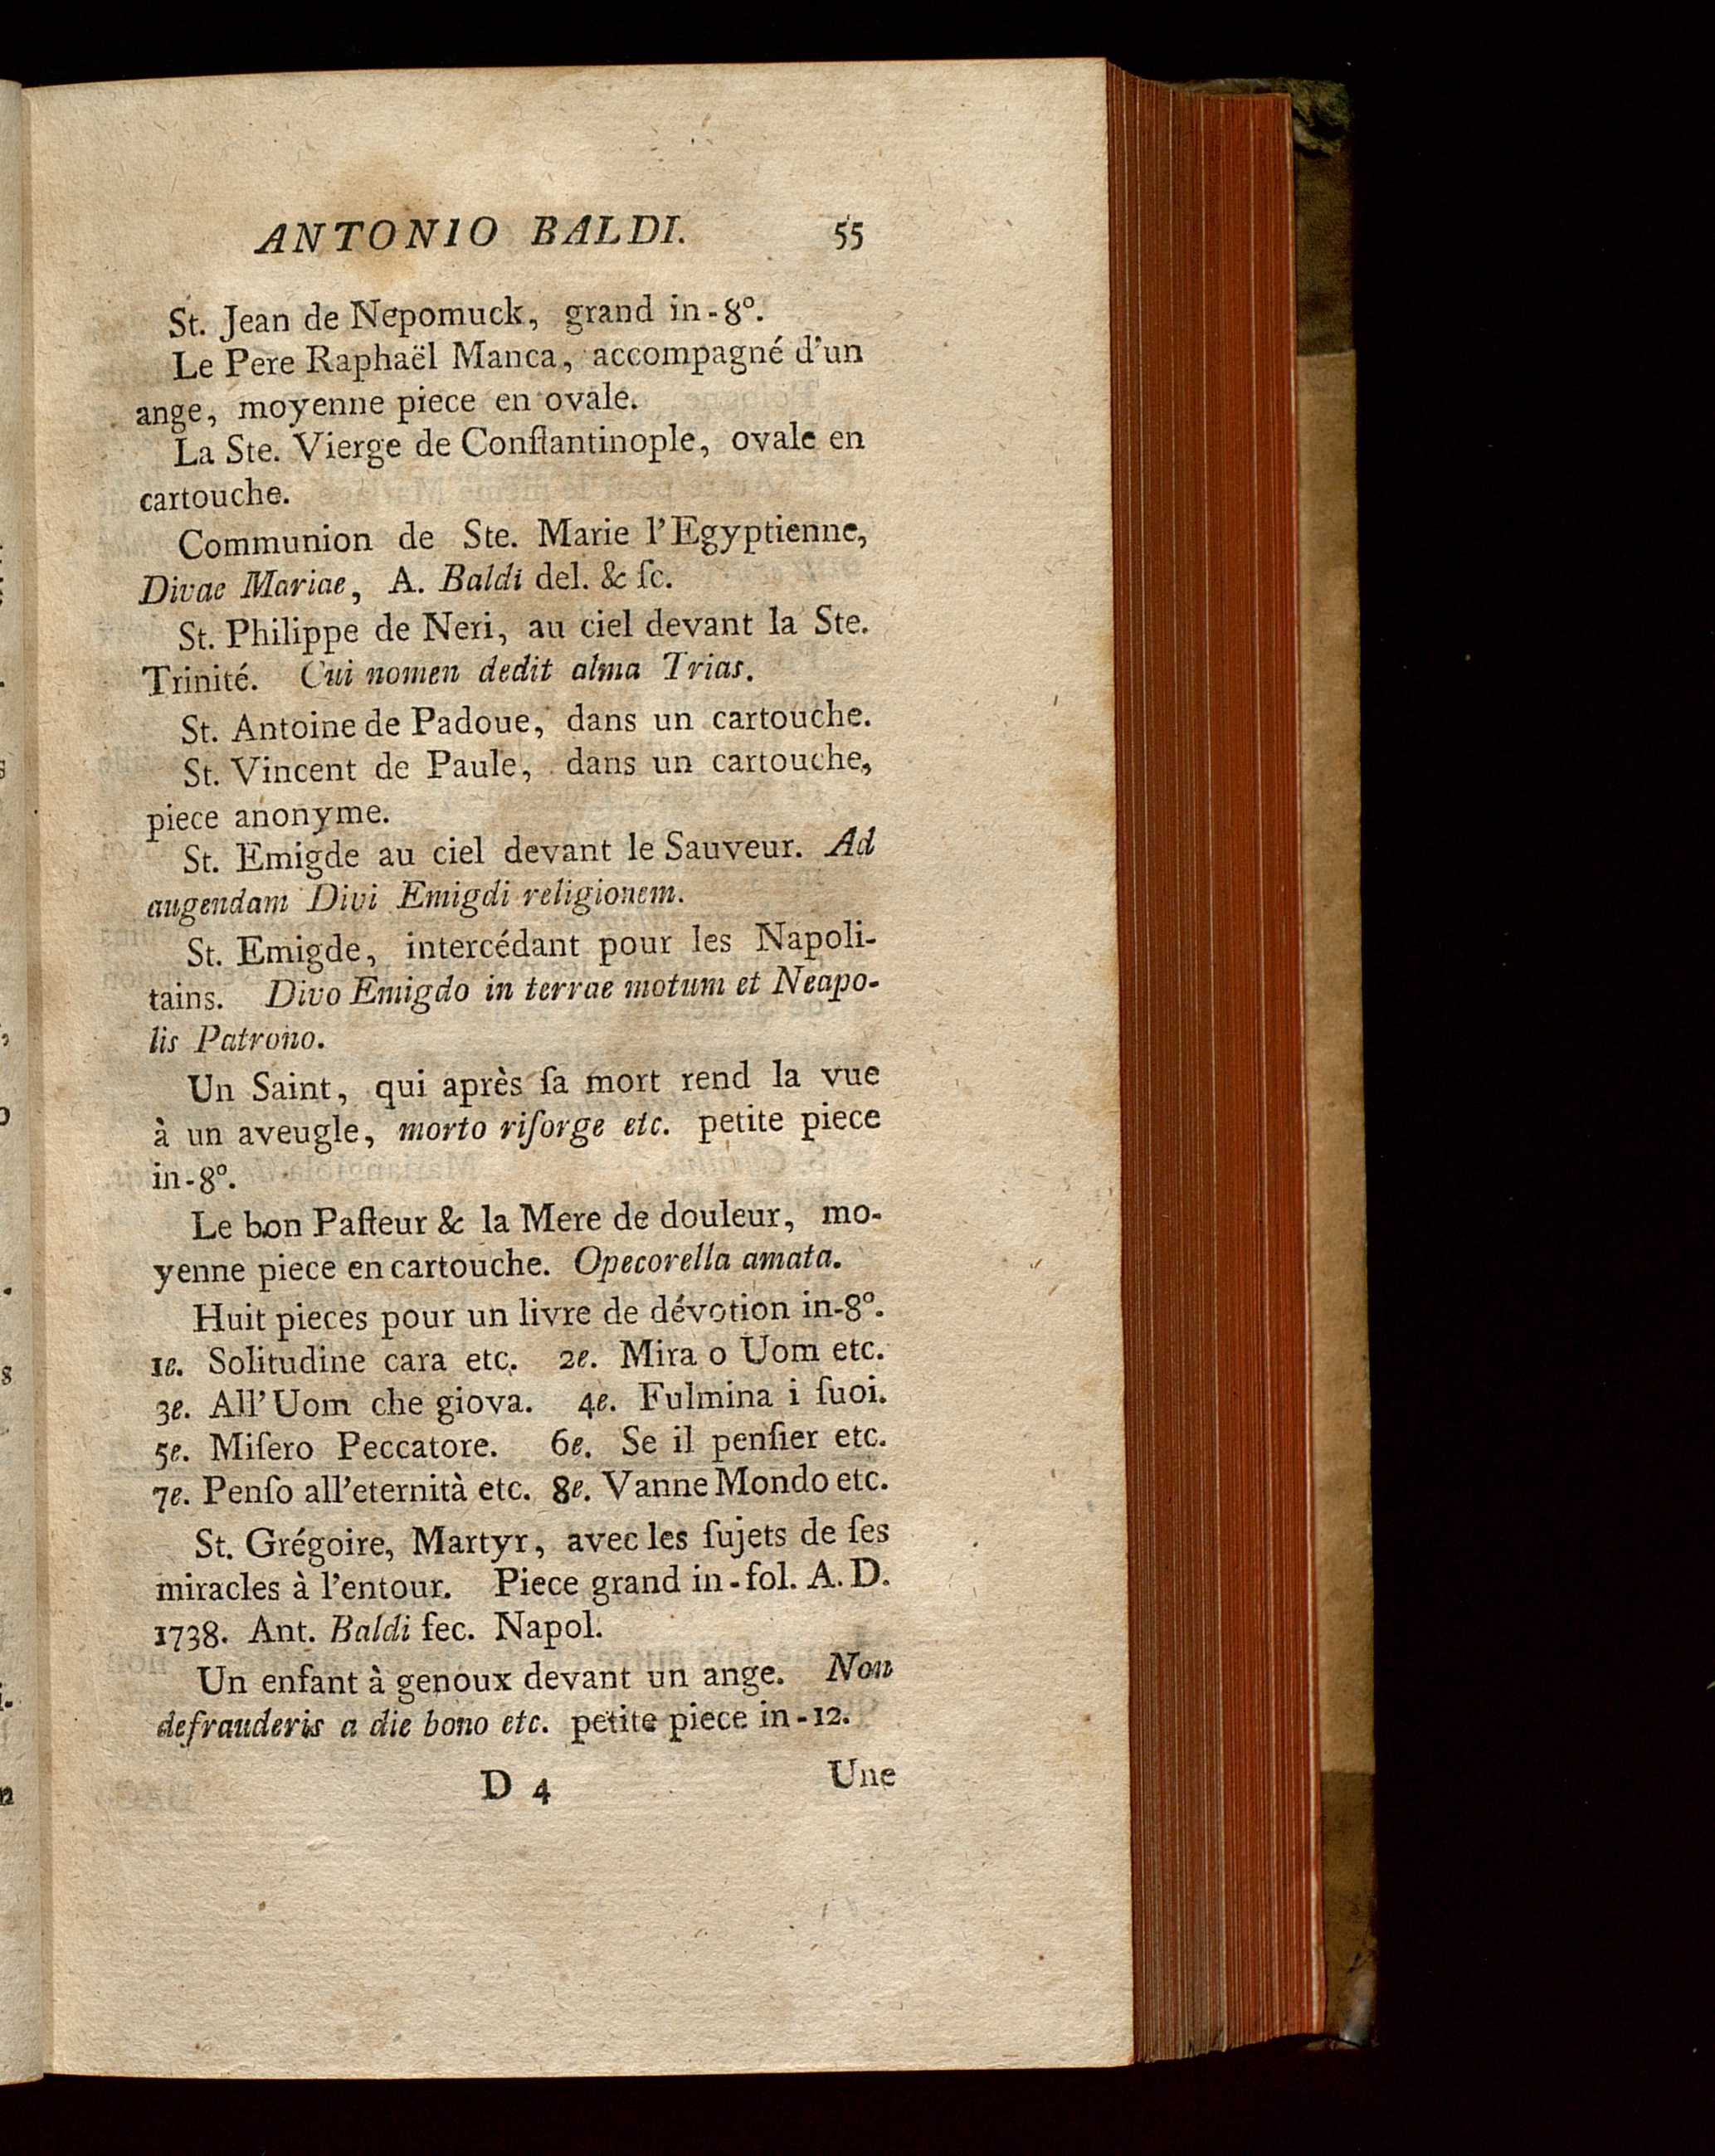 ANTONIO BALDI. 55
St. Jean de Nepomuck, grand in-8°.
Le Pere Raphaël Manca, accompagné d'un
ange, moyenne piece en ovale.
La Ste. Vierge de Conſtantinople, ovale en
cartouche.
Communion de Ste. Marie l'Egyptienne,
Divae Mariae, A. Baldi del. & ſc.
St. Philippe de Neri, au ciel devant la Ste.
Trinité. Cui nomen dedit alma Trias.
St. Antoine de Padoue, dans un cartouche.
St. Vincent de Paule, dans un cartouche,
piece anonyme.
St. Emigde au ciel devant le Sauveur. Ad
augendam Divi Emigdi religionem.
St. Emigde, intercédant pour les Napoli-
tains. Divo Emigdo in terrae motum et Neapo-
lis Patrono.
Un Saint, qui après ſa mort rend la vue
à un aveugle, morto riſorge etc. petite piece
in-8°.
Le bon Paſteur & la Mere de douleur, mo-
yenne piece en cartouche. Opecorella amata.
Huit pieces pour un livre de dévotion in-8°.
1e. Solitudine cara etc. 2e. Mira o Uom etc.
3e. All'Uom che giova. 4e. Fulmina i ſuoi.
5e. Miſero Peccatore. 6e. Se il penſier etc.
7e. Penſo all'eternità etc. 8e. Vanne Mondo etc.
St. Grégoire, Martyr, avec les ſujets de ſes
miracles à l'entour. Piece grand in-fol. A. D.
1738. Ant. Baldi fec. Napol.
Un enfant à genoux devant un ange. Non
defrauderis a die bono etc. petite piece in-12.
D 4 Une